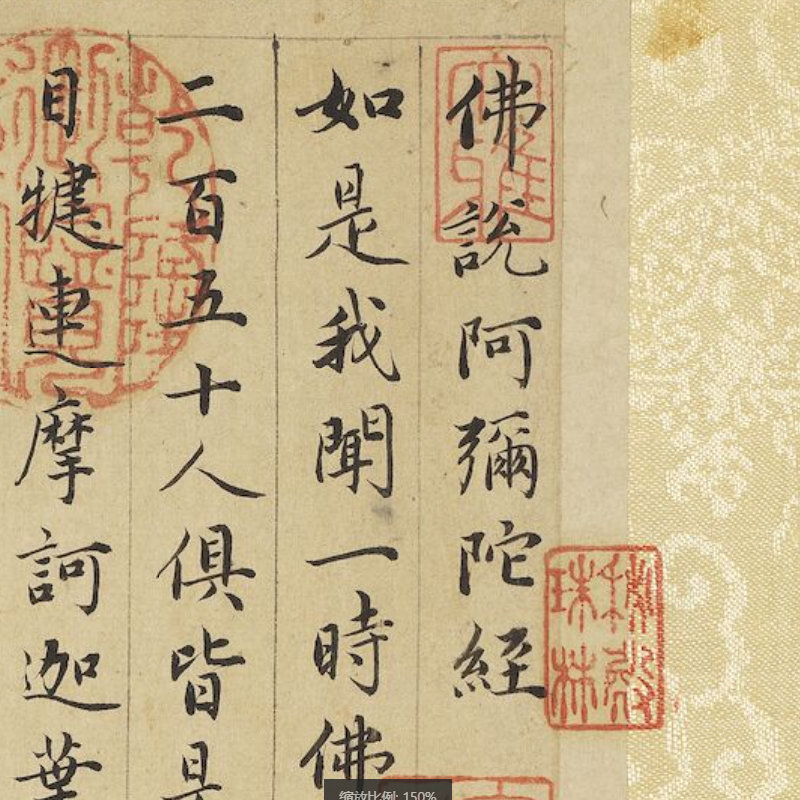 佛說阿彌陀經
如是我聞一時佛
二百五十人俱皆是
目犍連摩訶迦葉
秘殿珠林
缩放比例: 150%